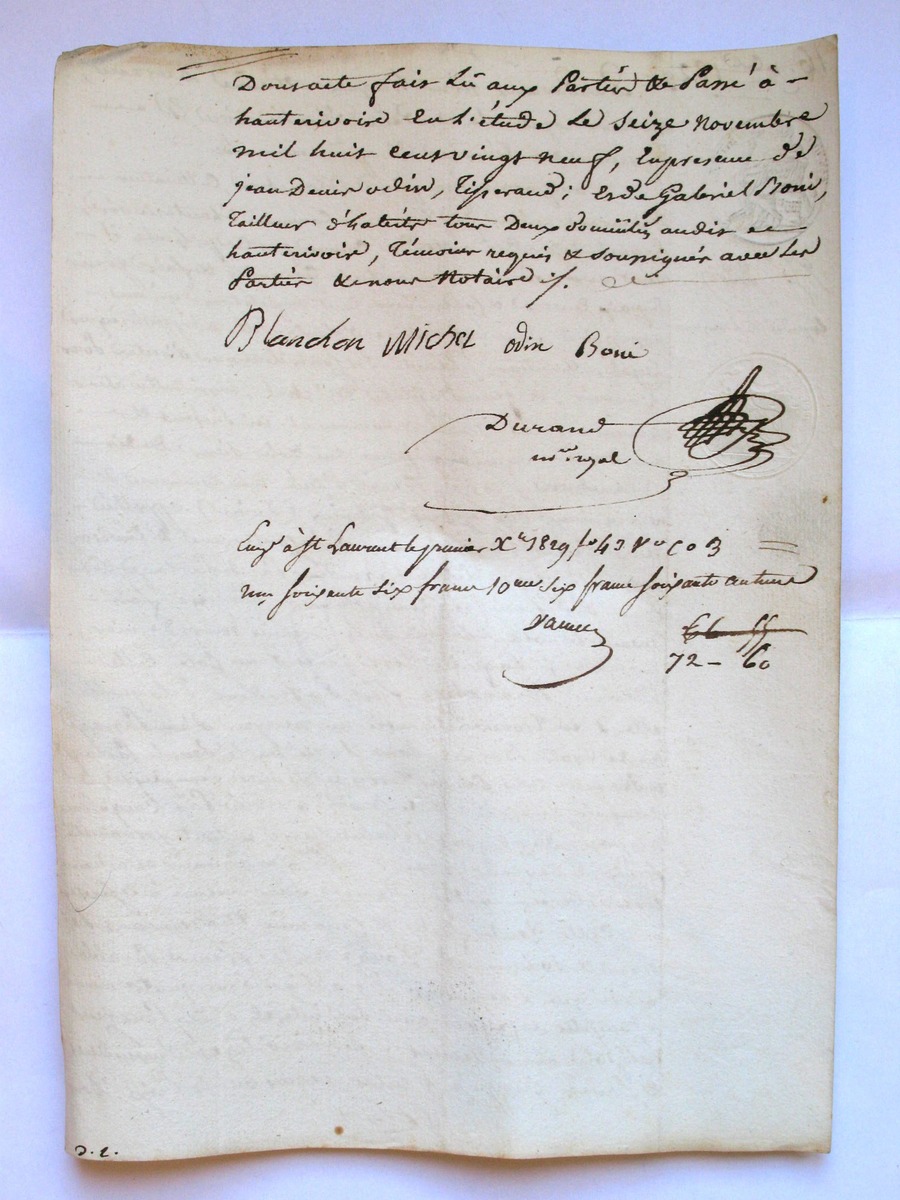 Dont acte fait Lû aux Partiës & Passé à
hauterivoire En L'étude Le seize Novembre
mil huit cent vingt neuf, En presence de
jean Denis odin, Tisserand; Et de Gabriel Boni,
Tailleur d'habits tous Deux domiciliés audit
hauterivoire, Témoins requis & soussignés avec Les
Partiës & nous Notaire ./.
Blanchon Michel odin Boni
Durand
nre royal
Enrgé à St Laurent le premier Xbre 1829 fo 43 Vo C 3
soixante six francs 10me six francs soixante centimes
66
72 - 60